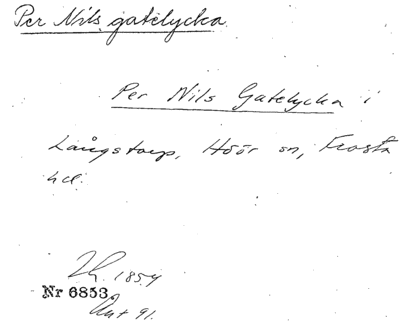 Per Nils gatelycka.
Per Nils Gatelycka i
Långstorp, Höör sn, Frosta
hd.
1854
Nr 6853.
91.